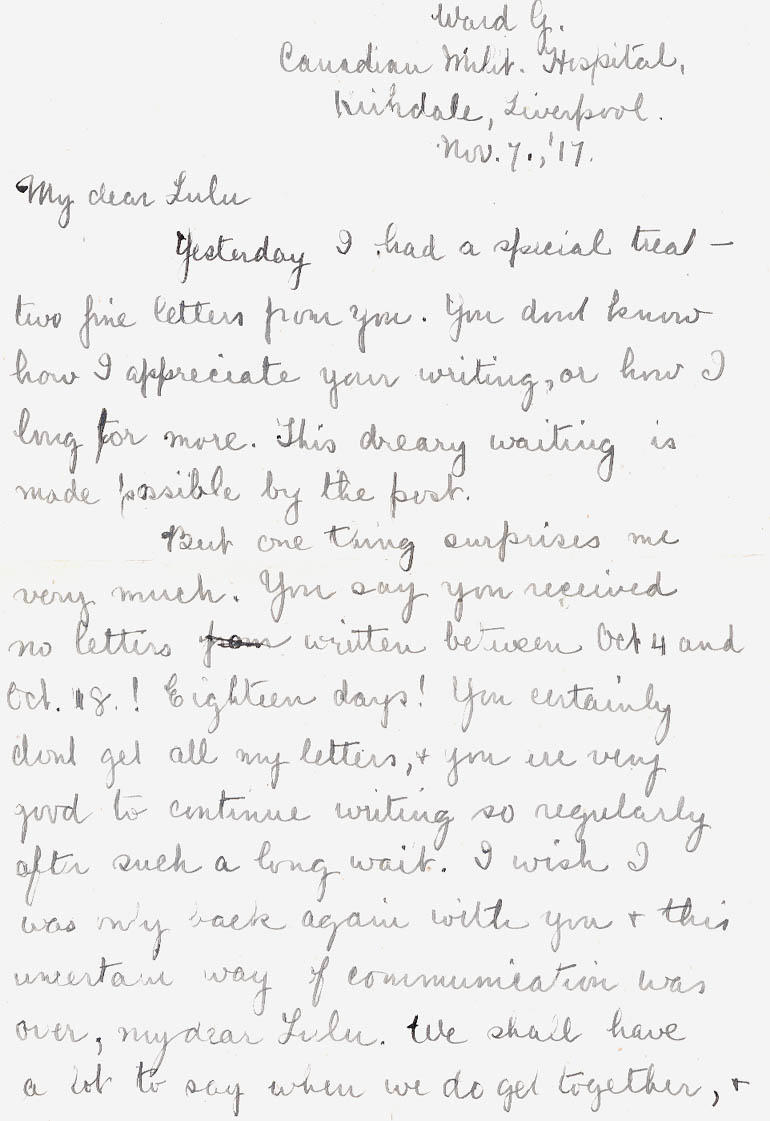 Ward G.
Canadian Milit. Hospital,
Kirkdale, Liverpool.
Nov. 7., '17.
My dear Lulu
Yesterday I had a special treat –
two fine letters from you. You dont know
how I appreciate your writing, or how I
long for more. This dreary waiting is
made possible by the post.
But one thing surprises me
very much. You say you received
no letters from written between Oct 4 and
Oct. 18.! Eighteen days! You certainly
dont get all my letters, + you are very
good to continue writing so regularly
after such a long wait. I wish I
was only back again with you + this
uncertain way of communication was
over, my dear Lulu. We shall have
a lot to say when we do get together, +